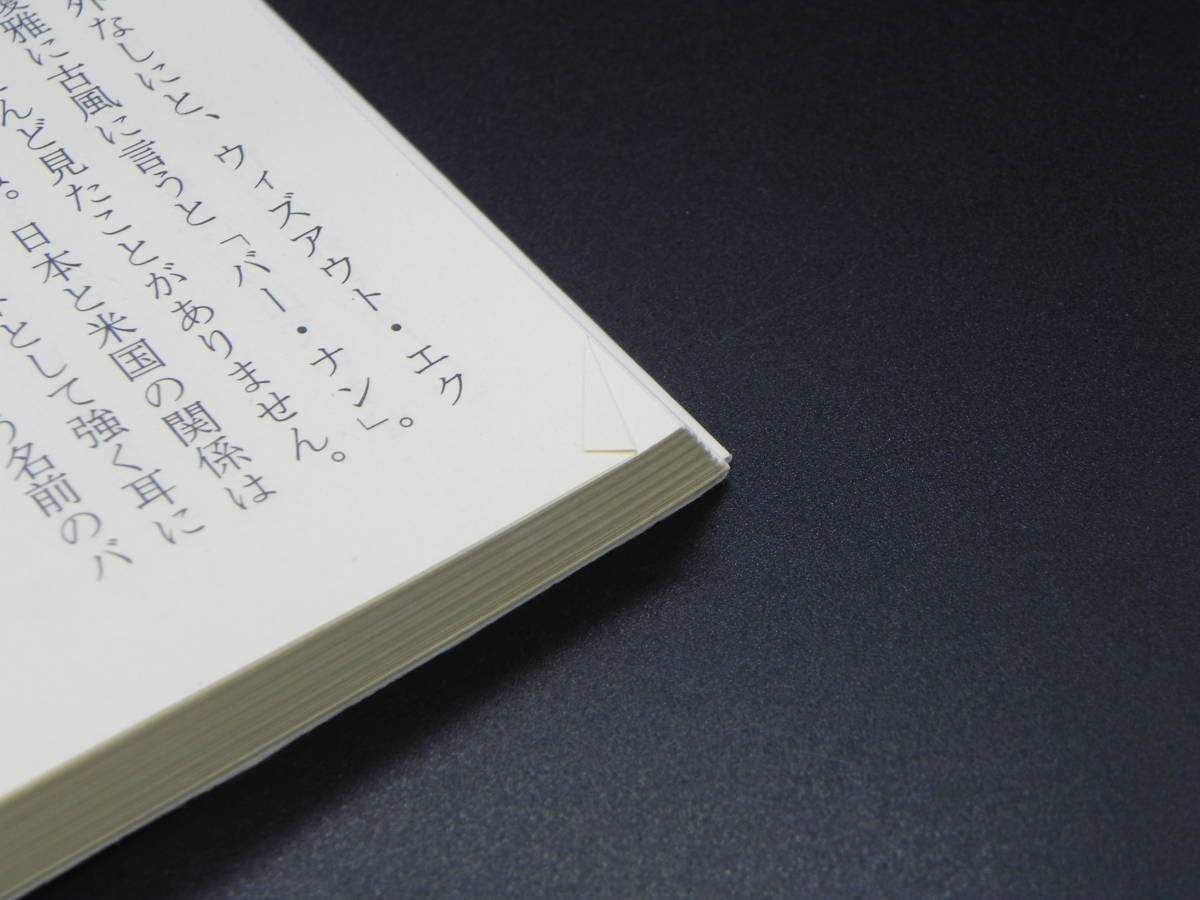 外なしにと、ウィズアウト・エク
優雅に古風に言うと「バー・ナン」。
んど見たことがありません。
。日本と米国の関係は
として強く耳に
う名前のバ